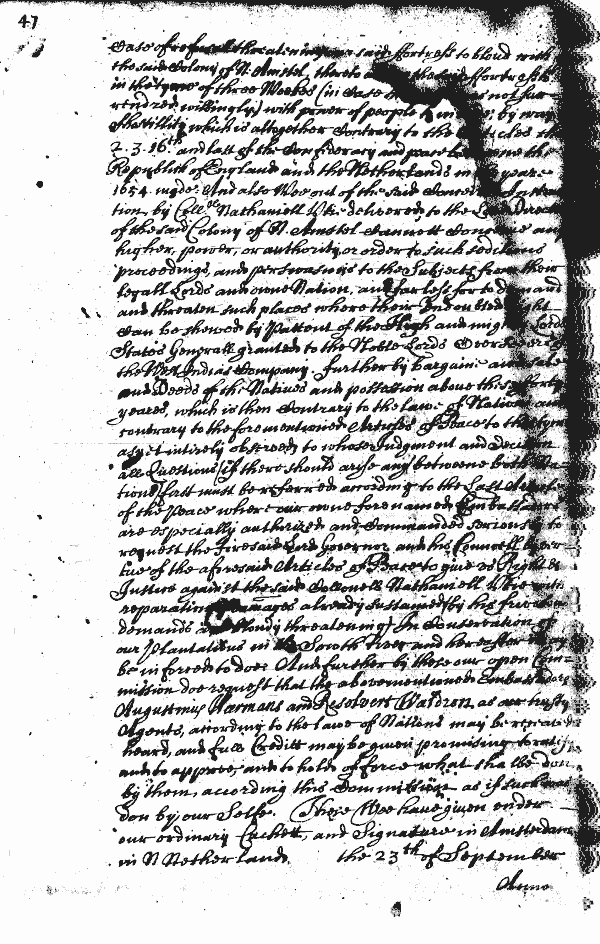 47
Case of refusall threatening the said ffortress to bloud with
the said Colony of N. Amstel, thereto the said ffortress
in the tyme of three Weekes (in case not Sur
rendred willingly) with power of people by way
of hostillity which is altogether Contrary to the ticles the
2. 3. 16th and last of the Confideracy and peace the
Republick of England and the Netherlands in yeare
1654 made. And also Wee out of the said
tion, by Coll. Nathaniell Utie delivered to the
of the said Colony of N. Amstel Cannott an
higher, power, or authority, or order to such seditious
proceedings, and perswasions to the Subjects from their
legall Lords and owne Nation, and far less for to and
and threaten such places where their undoubted ight
Can be shewed by Pattent of the High and migh Lords
States Generall granted to the Noble Lords
the West Indias Company. further by bargaine and sale
and Deeds of the Natives and possession above these forty
yeares, which is then Contrary to the lawe of Nations and
contrary to the forementioned Articles of Peace to this tyme
as yet intirely observed, to whose Judgment and decision
all Questions (if there should arise any betweene both Na-
tions) last must be referred according to the Last Article
of the Peace where our owne forenamed Embassad
are especially authorized and Commanded seriously to
request the foresaid Lord Governor and his Councell by ver
tue of the aforesaid Articles of Peace to give us Right &
Justice against the said Collonell Nathaniell Utie with
reparation Damages already sustained (by his frivolous
demands a bloudy threatening) In Conservation of
our Plantations in the South River and hereafter may
be inforced to doe: And further by these our open Com-
mission doe request that the abovementioned Embassadors
Augustinus Harmans and Resolvert Waldron as our trusty
Agents, according to the lawe of Nations may be
heard, and full Creditt may be given promising to ratify
and to approve, and to hold of force what shalbe don
by them, according this Commission as if such were
don by our Selfe. These Wee have given under
our ordinary Cachett, and Signature in Amsterdam
in N Netherlands. the 23th of September
Anno